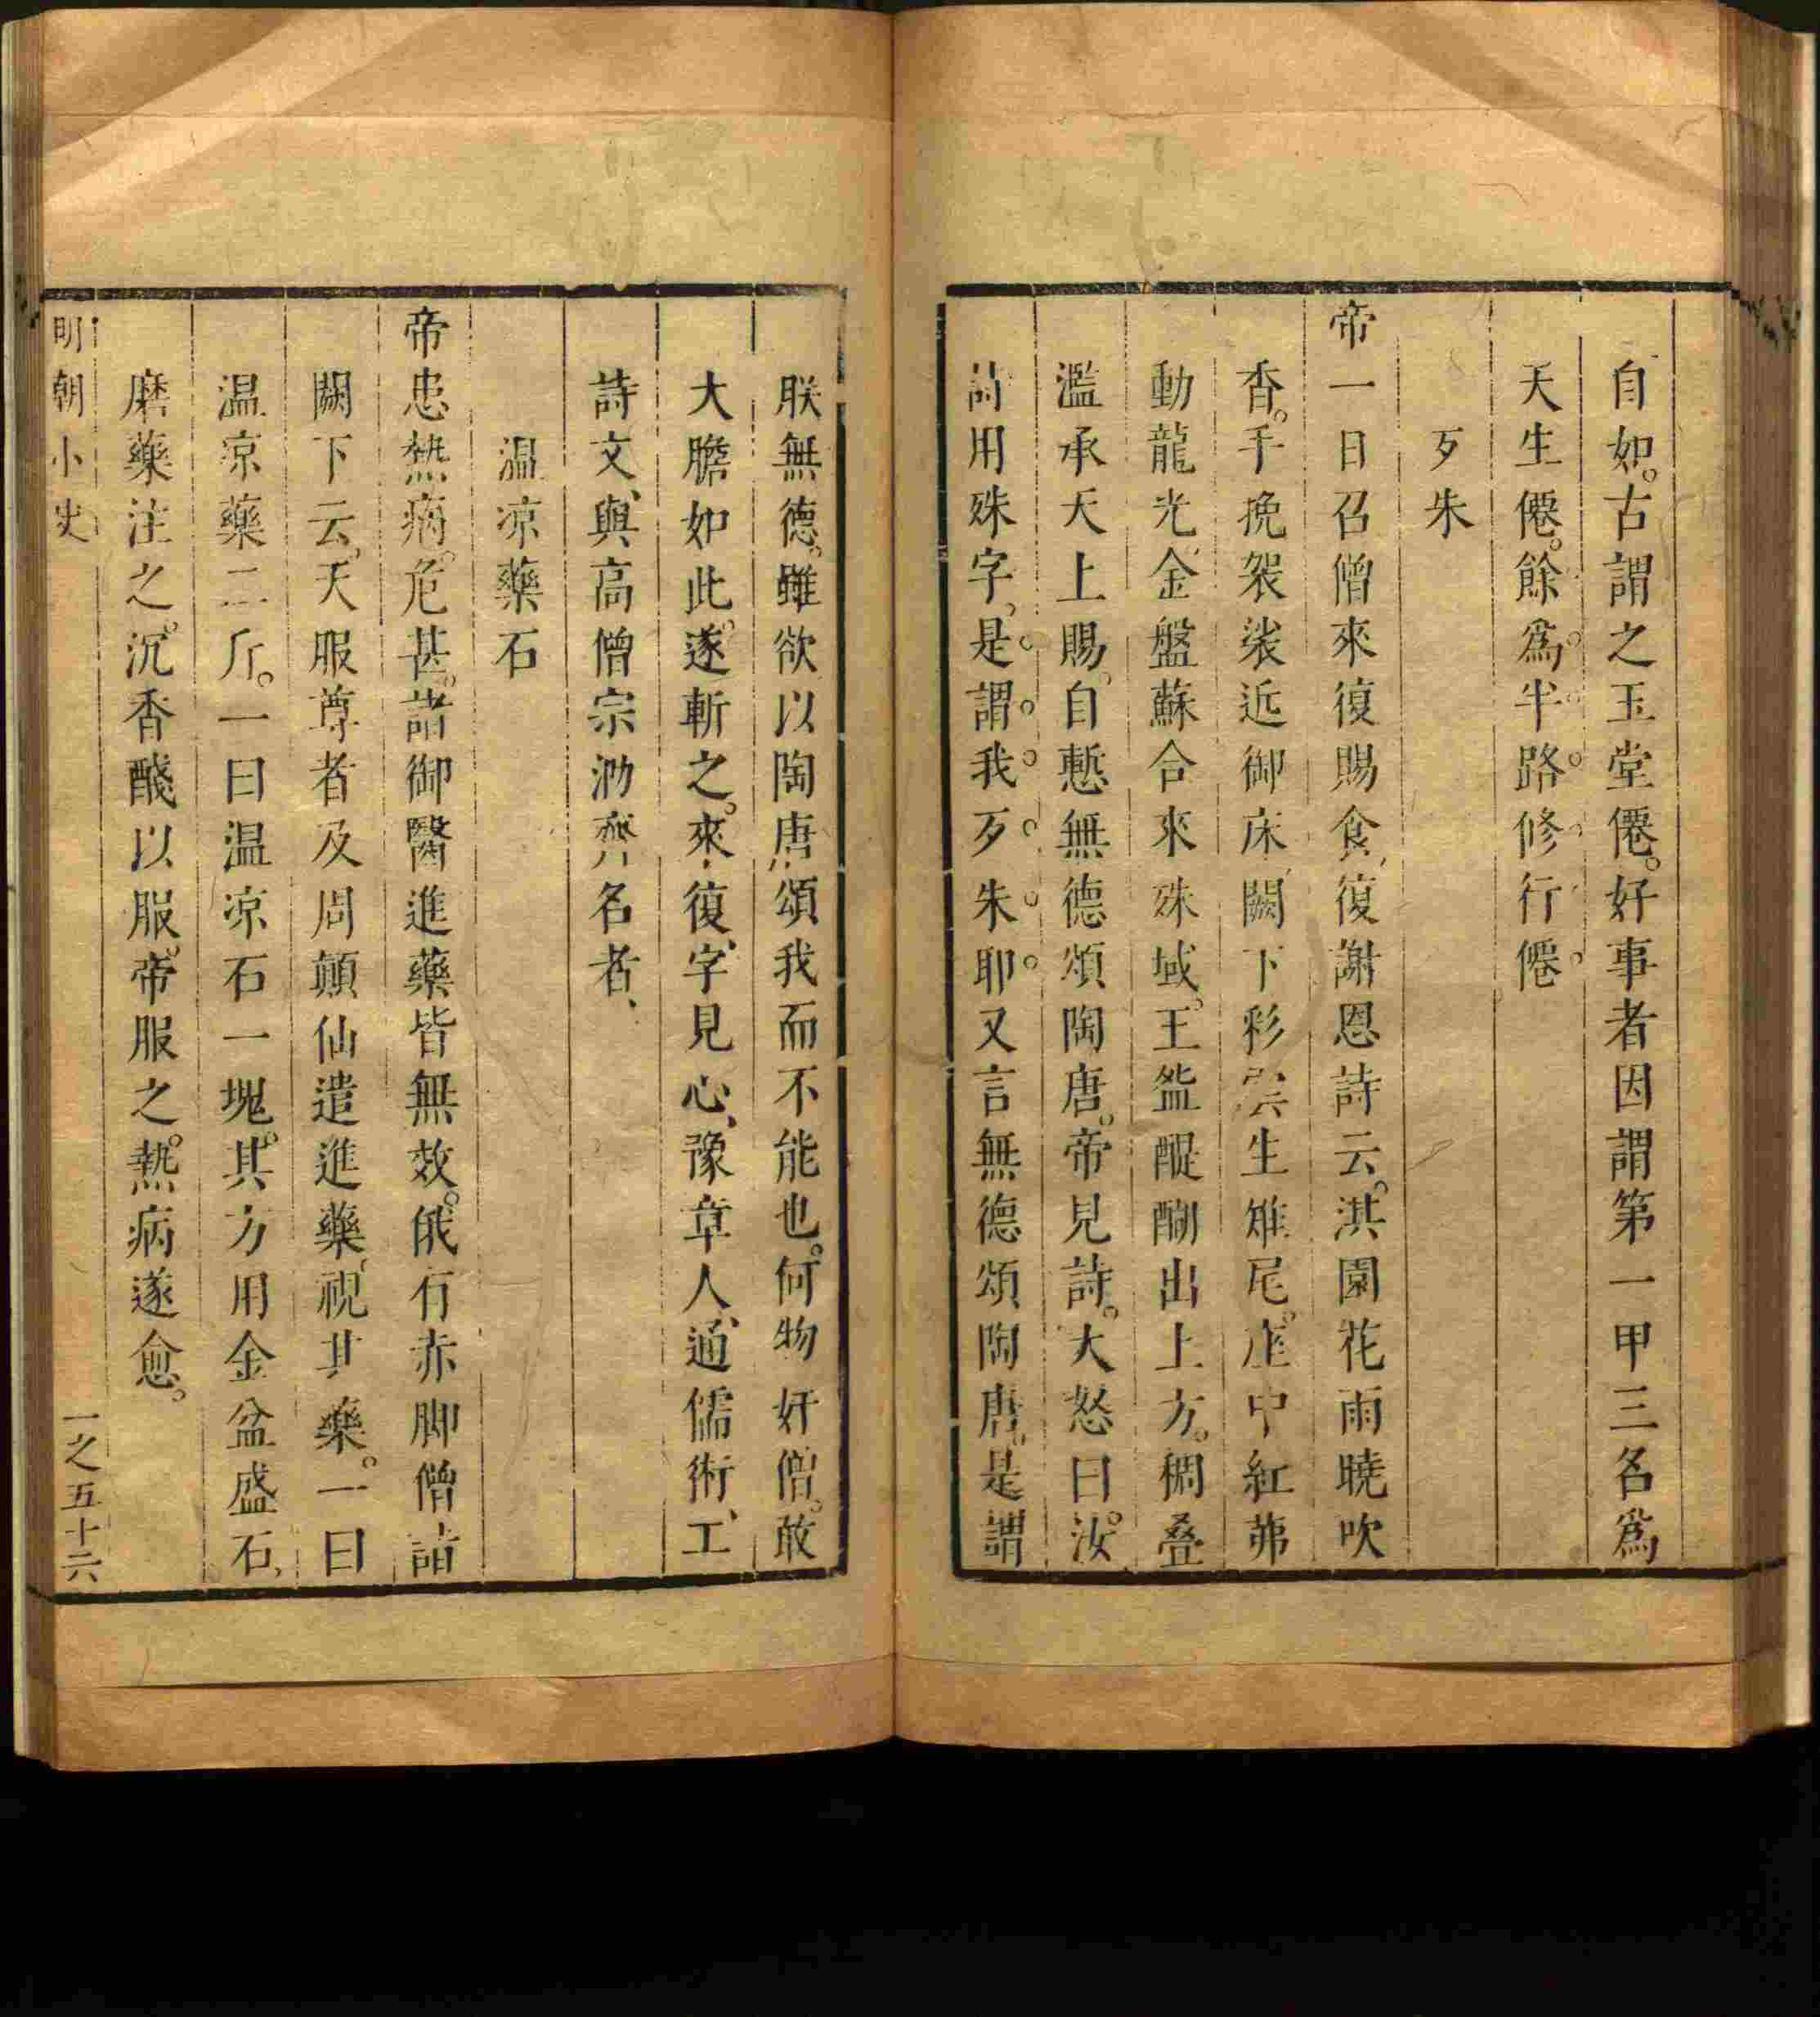 自如。古謂之玉堂僊。好事者因謂第一甲三名爲
天生僊。餘爲半路修行僊
歹朱
帝一日召僧來復賜食、復謝恩詩云。淇園花雨曉吹
香。手挽袈裟近御床、闕下彩雲生雉尾。座中紅茀
動龍光、金盤蘇合來殊域。玉盌醍醐出上方。稠叠
濫承天上賜。自慙無德頌陶唐。帝見詩。大怒曰。汝
詩用殊字。是謂我歹朱耶又言無德頌陶唐。是謂
朕無德。雖欲以陶唐頌我而不能也。何物奸僧。敢
大膽如此。遂斬之。來復、字見心、豫章人、通儒術、工
詩文、與高僧宗泐齊名者、
温凉藥石
帝患熱病。危甚。諸御醫進藥皆無效。俄有赤脚僧詣
闕下云。天服尊者及周顛仙遣進藥。視其藥。一曰
温凉藥二斤。一曰温凉石一塊。其方用金盆盛石、
磨藥注之。沉香醆以服。帝服之。熱病遂愈。
明朝小史
一之五十六